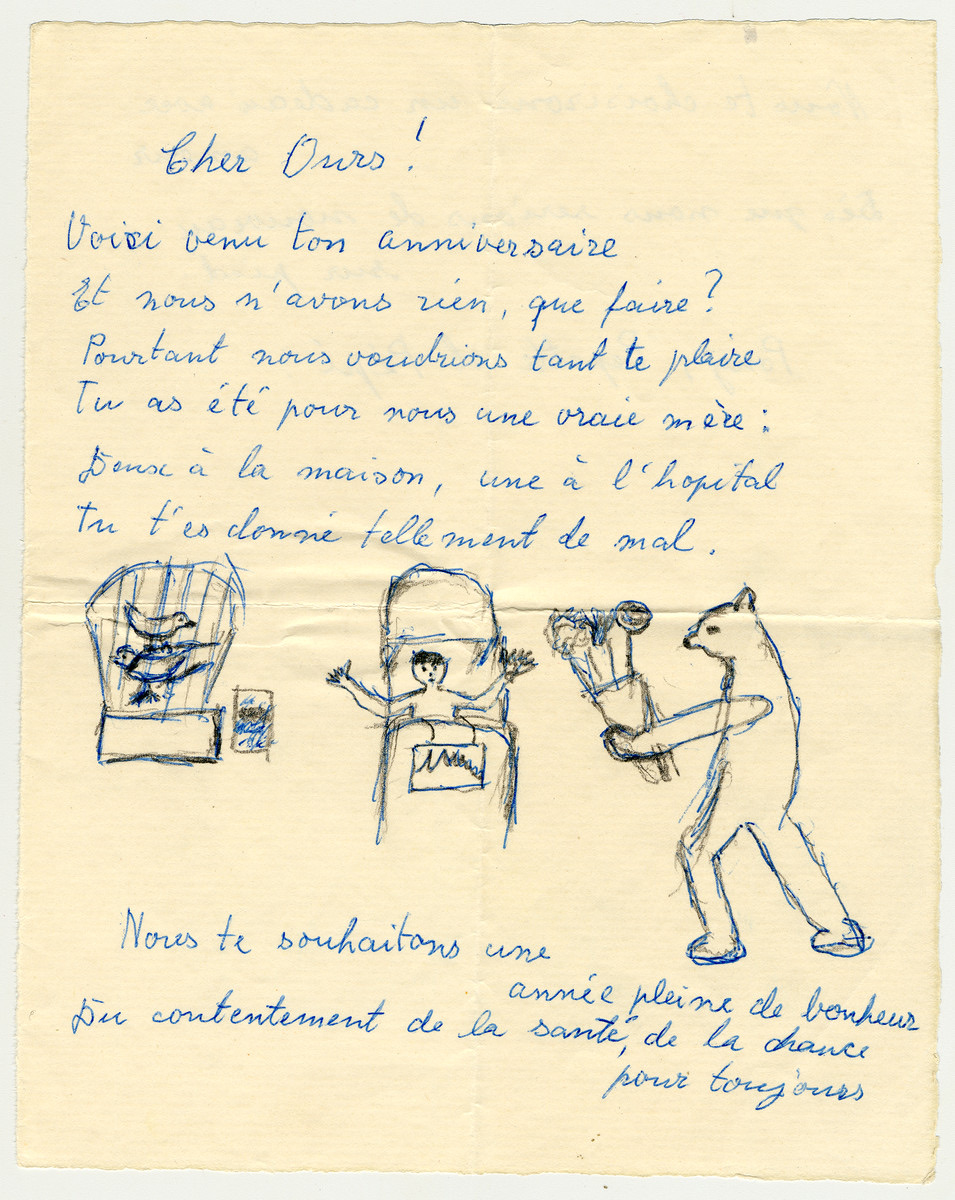 Cher Ours !
Voici venu ton anniversaire
Et nous n'avons rien, que faire ?
Pourtant nous voudrions tant te plaire
Tu as été pour nous une vraie mère :
Deux à la maison, une à l'hopital
Tu t'es donné tellement de mal.
Nous te souhaitons une
année pleine de bonheur
Du contentement de la santé, de la chance
pour toujours